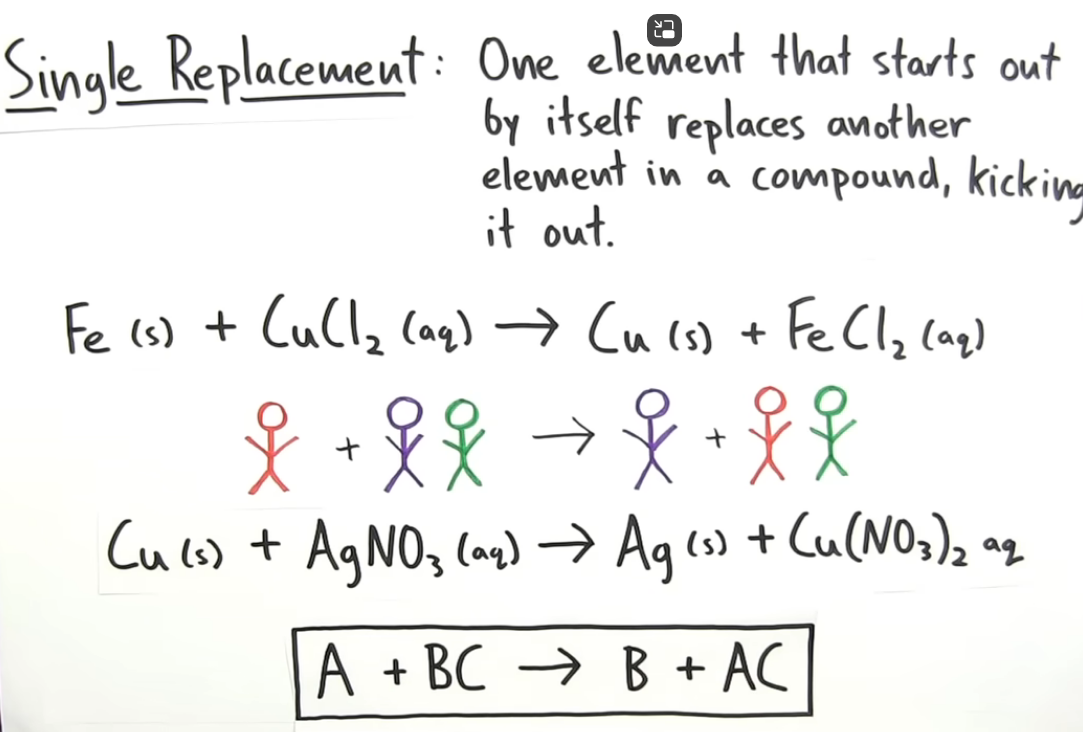 Single Replacement: One element that starts out
by itself replaces another
element in a compound, kicking
it out.
Fe (s) + CuCl₂ (aq) → Cu (s) + FeCl₂ (aq)
+ → +
Cu (s) + AgNO₃ (aq) → Ag (s) + Cu(NO₃)₂ aq
A + BC → B + AC